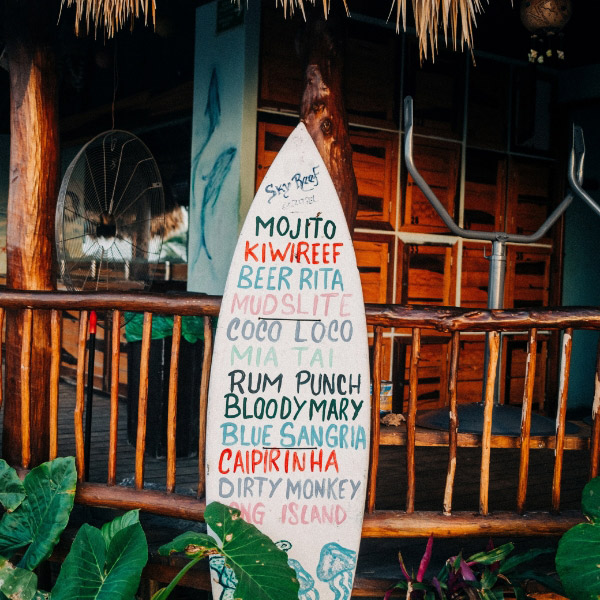 Sky Reef
MOJITO
KIWIREEF
BEER RITA
MUDSLITE
COCO LOCO
MIA TAI
RUM PUNCH
BLOODY MARY
BLUE SANGRIA
CAIPIRINHA
DIRTY MONKEY
ISLAND